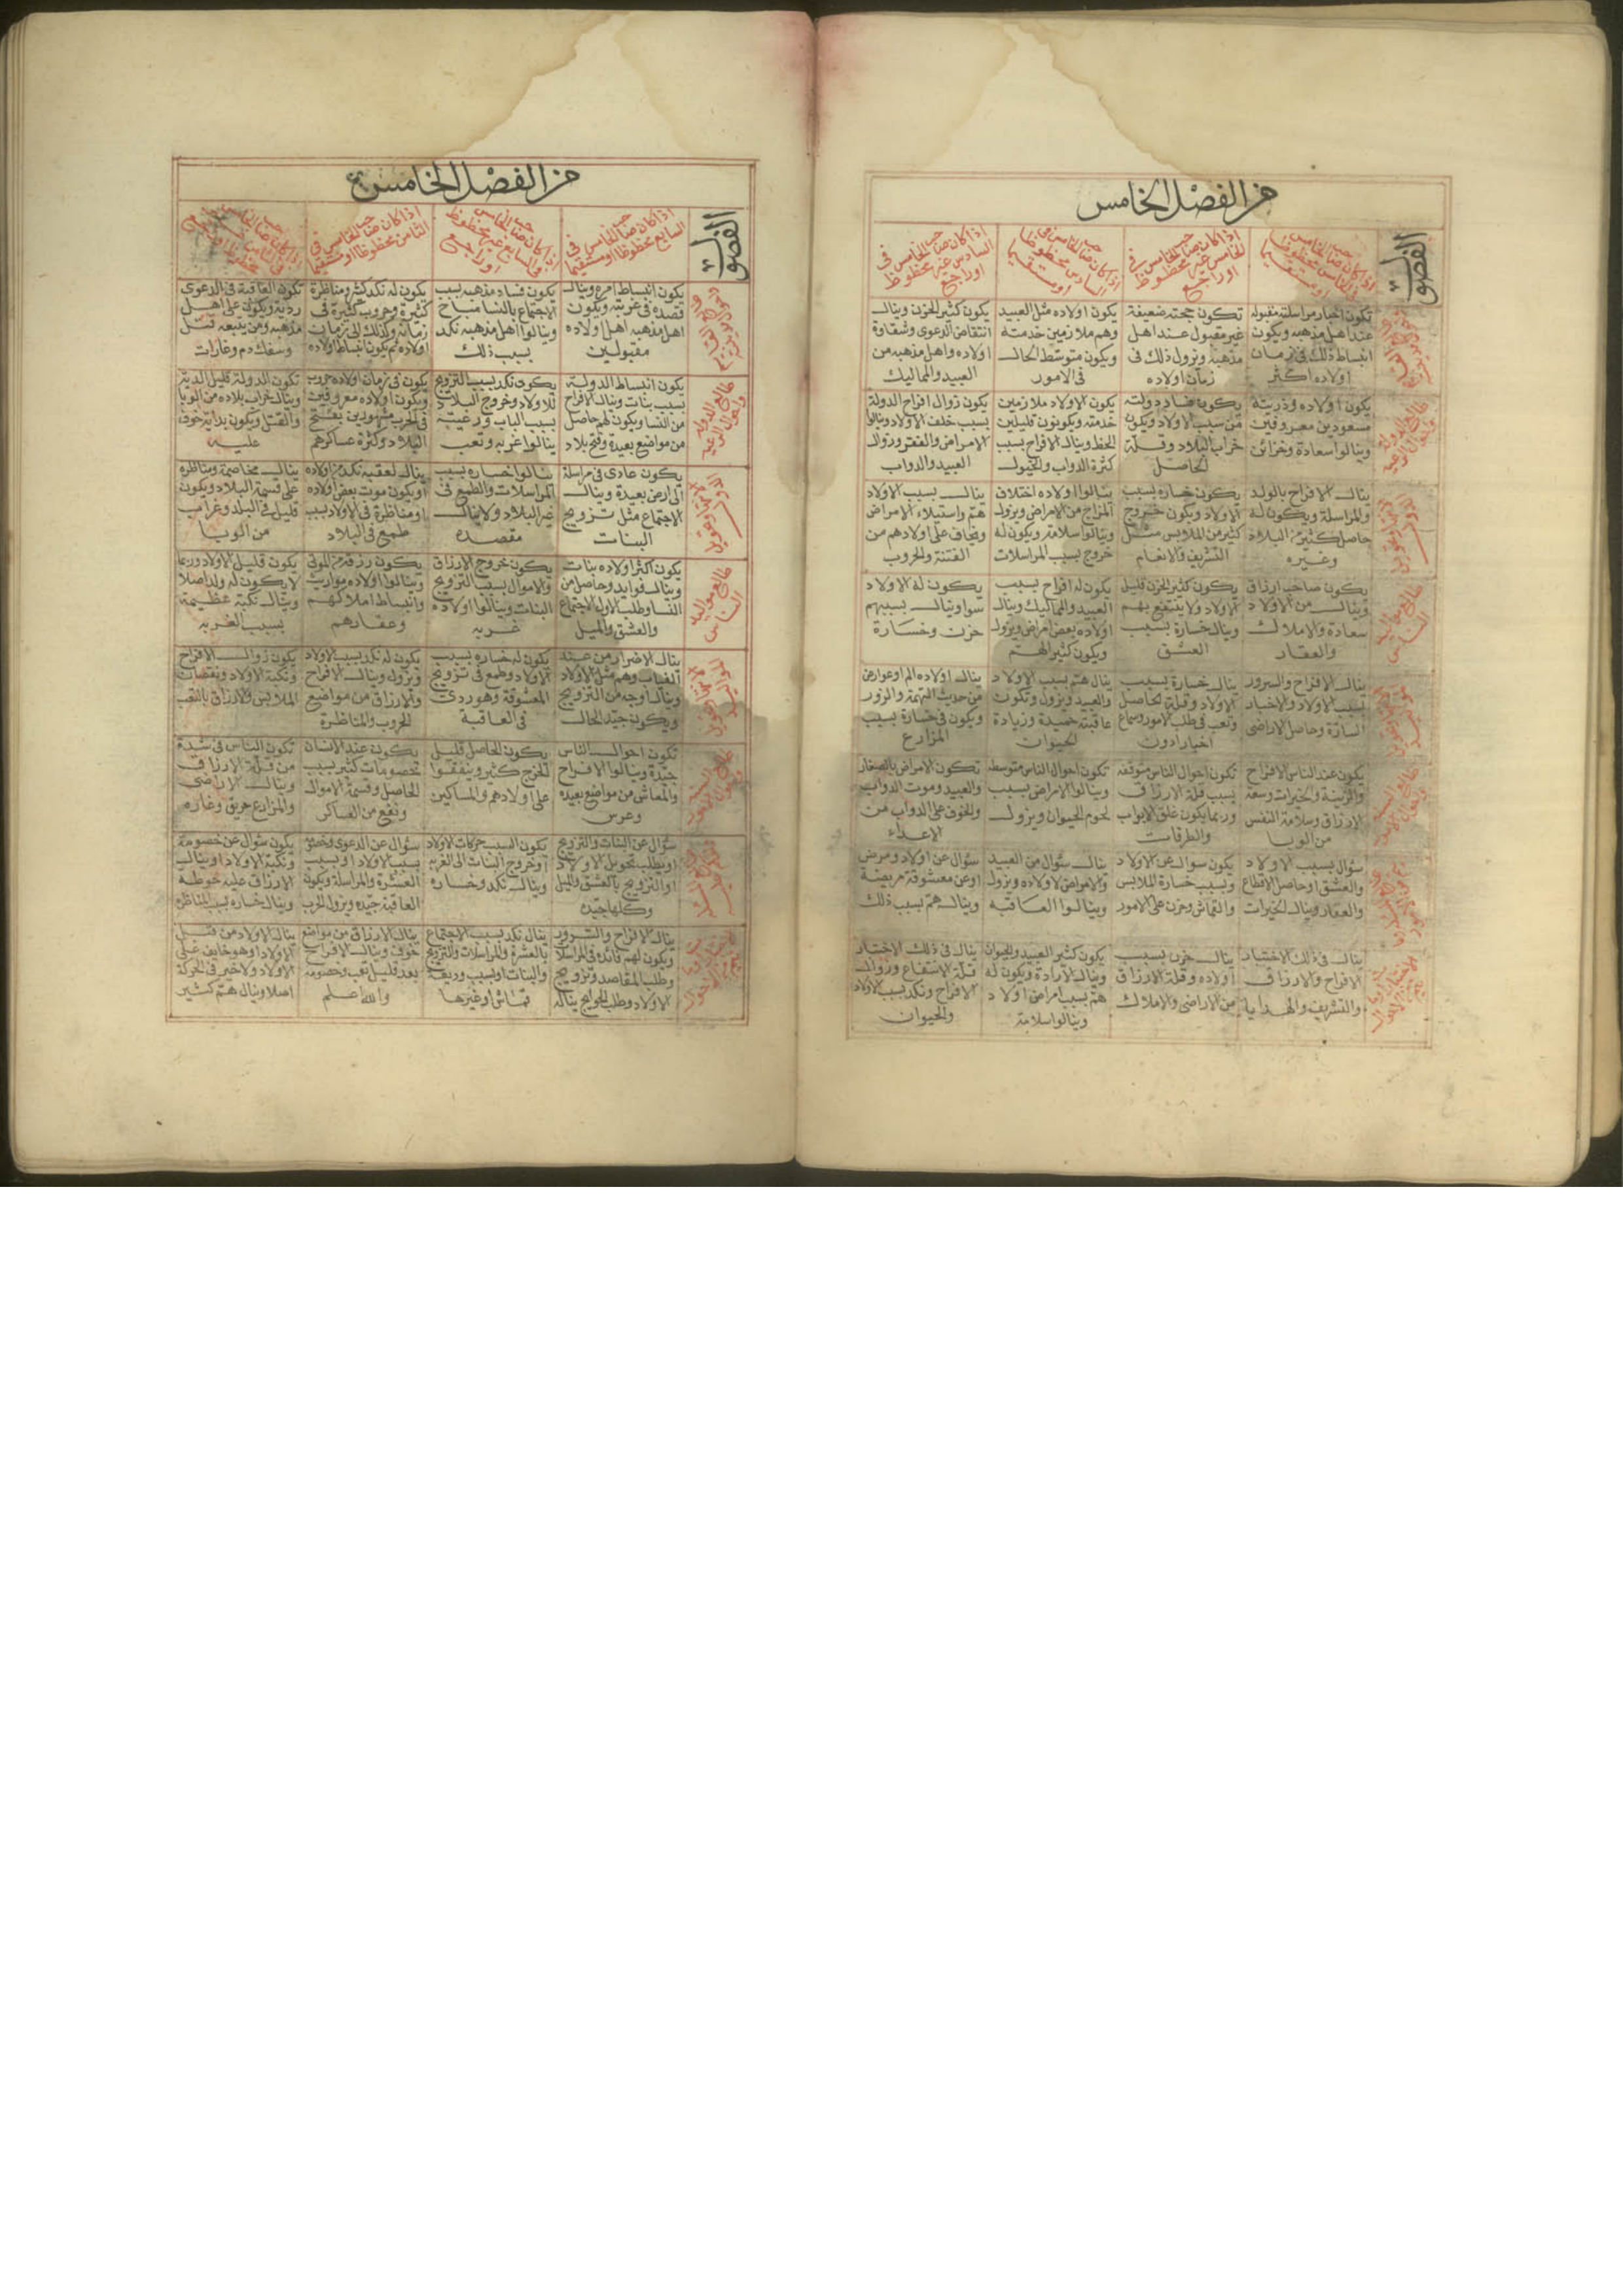 من الفصل الخامس
الفصول
اذا كان صاحب الخامس في الخامس محظوظا او مستقيما
اذا كان صاحب الخامس في الخامس غير محظوظ او راجع
اذا كان صاحب الخامس في السادس محظوظا او مستقيما
اذا كان صاحب الخامس في السادس غير محظوظ او راجع
تكون اخبار مراسلته مقبوله
عند اهل مذهبه ويكون
انبساط ذلك في زمان
اولاده اكثر
تكون حجته ضعيفة
غير مقبول عند اهل
مذهبه ويزول ذلك في
زمان اولاده
يكون اولاده مثل العبيد
وهم ملازمين خدمته
ويكون متوسط الحال
في الامور
يكون كثير الحزن وينال
انتقاض الدعوى وشقاوة
اولاده واهل مذهبه من
العبيد والمماليك
طالع الدولة
واحوال الرعيه
يكون اولاده وذريته
مسعودين معروفين
وينالوا سعادة وخزائن
يكون فساد دولته
من سبب الاولاد ويكون
خراب البلاد وقلة
الحاصل
يكون الاولاد ملازمين
خدمته ويكونون قليلين
الحظ وينال الافراح بسبب
كثرة الدواب والخيول
يكون زوال افراح الدولة
بسبب خلف الاولاد وينالوا
الامراض والفقر وزوال
العبيد والدواب
ينال الافراح بالولد
والمراسلة ويكون له
حاصل كثير من البلاد
وغيره
يكون خساره بسبب
الاولاد ويكون خروج
كثير من الملابس مثل
التشريف والانعام
ينالوا اولاده اختلاف
المزاج من الامراض ويزول
وينالوا سلامة ويكون له
خروج بسبب المراسلات
ينال بسبب الاولاد
هم واستيلاء الامراض
ويخاف على اولادهم من
الفتنة والحروب
طالع مواليد
الناس
يكون صاحب ارزاق
وينال من الاولاد
سعادة والاملاك
والعقار
يكون كثير الحزن قليل
الاولاد ولا ينتفع بهم
وينال خسارة بسبب
العشق
يكون له افراح بسبب
العبيد والمماليك وينال
اولاده بعض امراض ويزول
ويكون كثير الهم
يكون له الاولاد
سوا وينال بسببهم
حزن وخسارة
ينال الافراح والسرور
بسبب الاولاد والاخبار
السارة وحاصل الاراضي
ينال خسارة بسبب
الاولاد وقلة الحاصل
وتعب في طلب الامور وسماع
اخبار دون
ينال هم بسبب الاولاد
والعبيد ويزول وتكون
عاقبته حميدة وزيادة
الحيوان
ينال اولاده الم او عوارض
من حديث التهمة والزور
ويكون في خسارة بسبب
المزارع
يكون عند الناس الافراح
والزينة والخيرات وسعة
الارزاق وسلامة النفس
من الوبا
تكون احوال الناس متوقفه
بسبب قلة الارزاق
وربما يكون غلق الابواب
والطرقات
تكون احوال الناس متوسطه
وينالوا الامراض بسبب
لحوم الحيوان ويزول
تكون الامراض بالصغار
والعبيد وموت الدواب
والخوف على الدواب من
الاعداء
سؤال بسبب الاولاد
والعشق او حاصل الاقطاع
والعقار وينال الخيرات
يكون سوال عن الاولاد
وبسبب خسارة الملابس
والقماش وحزن على الامور
ينال سؤال من العبيد
والامراض لاولاده ويزول
وينالوا العاقبه
سؤال عن اولاد ومرض
او عن معشوقة مريضة
وينال هم بسبب ذلك
ينال في ذلك الاختيار
الافراح والارزاق
والتشريف والهدايا
ينال حزن بسبب
اولاده وقلة الارزاق
من الاراضي والاملاك
يكون كثير العبيد والحيوان
وينال الارادة ويكون له
هم بسبب امراض اولاد
وينالوا سلامة
ينال في ذلك الاختيار
قلة الانتفاع وزوال
الافراح ونكد بسبب الاولاد
والحيوان
من الفصل الخامس
الفصول
اذا كان صاحب الخامس في السابع محظوظا او مستقيما
اذا كان صاحب الخامس في السابع غير محظوظ او راجع
اذا كان صاحب الخامس في الثامن محظوظا او مستقيما
يكون انبساط امره وينال
قصده في غربته ويكون
اهل مذهبه اهل اولاده
مقبولين
يكون فساد مذهبه بسبب
الاجتماع بالنسا مباح
وينالوا اهل مذهبه نكد
بسبب ذلك
يكون له نكد كثير ومناظرة
كثيرة وحروب كثيرة في
زمانه وكذلك الى زمان
اولاده ثم يكون انبساط اولاده
تكون العاقبة في الدعوى
ردية ويكون على اهل
مذهبه ومن يتبعه قتل
وسفك دم وغارات
طالع الدولة
واحوال الرعيه
يكون انبساط الدولة
بسبب بنات وينال الافراح
من النسا ويكون لهم حاصل
من مواضع بعيدة وفتح بلاد
يكون نكد بسبب التزويج
للاولاد وخروج البلاد
بسبب الباب ورغبته
ينالوا غربه وتعب
يكون في زمان اولاده حروب
ويكون اولاده معروفين
في الحرب مشهورين بفتح
البلاد وكثرة عساكرهم
تكون الدولة قليل الدية
وينال خراب بلاده من الوبا
والقتل ويكون بداية خوف
عليه
يكون عادى في مراسلة
الى ارض بعيدة وينال
الاجتماع مثل تزويج
البنات
ينالوا خساره بسبب
المراسلات والطمع في
غير البلاد ولا ينال
مقصده
ينال لعقبه نكد من اولاده
او يكون موت بعض اولاده
او مناظرة في الاولاد بسبب
طمع في البلاد
ينال مخاصمة ومناظره
على قسمة البلاد ويكون
قليل في البلد وغرايب
من الوبا
طالع مواليد
الناس
يكون اكثر اولاده بنات
وينال فوايد وحاصل من
النسا وطلب الاول الاجتماع
والعشق والميل
يكون خروج الارزاق
والاموال بسبب التزويج
البنات وينالوا اولاده
غربه
يكون رزقه من الموتى
وينالوا اولاده مواريث
وانبساط املاكهم
وعقارهم
يكون قليل الاولاد وربما
لا يكون له ولد اصلا
وينال نكبة عظيمة
بسبب الغربه
ينال الاضرار من عند
الغياب وهم مثل الاولاد
وينال اوجه من التزويج
ويكون جيد الحال
يكون له خساره بسبب
الاولاد وطمع في تزويج
المعشوقة وهو ردى
في العاقبة
يكون له نكد بسبب الاولاد
ويزول وينال الافراح
والارزاق من مواضع
الحروب والمناظرة
يكون زوال الافراح
ونكبة الاولاد ونقصان
الملابس والارزاق بالتعب
تكون احوال الناس
جيدة وينالوا الافراح
والمعاش من مواضع بعيده
وعرس
يكون الحاصل قليل
الخرج كثير وينفقوا
على اولادهم والمساكين
يكون عند الانسان
خصومات كثير بسبب
الحاصل وقسمة الاموال
ونفع من العساكر
تكون الناس في شدة
من قلة الارزاق
وينال الاراضي
والمزارع حريق وغاره
سؤال عن البنات والتزويج
او بطلب تحويل الاولاد
او التزويج بالعشق والميل
وكلها جيده
تكون السبب حركات الاولاد
او خروج البنات الى الغربه
وينال نكد وخساره
سؤال عن الدعوى وخصم
بسبب الاولاد او بسبب
العشرة والمراسلة ويكون
العاقبة جيده ويزول الحرب
يكون سؤال عن خصومة
ونكبة الاولاد او ينالب
الارزاق عليه حوطه
وينال خساره بسبب المناظره
ينال الافراح والسرور
ويكون لهم فائده في المراسلات
وطلب المقاصد وتزويج
الاولاد وطلب الحوايج يناله
ينال نكد بسبب الاجتماع
بالعشرة والمراسلات والتزويج
والبنات او لسبب وديعة
قماش او غيرها
ينال الارزاق من مواضع
خوف وينال الافراح
بعد قليل تعب وخصومه
والله اعلم
ينال الاولاد من قتل
الاولاد او هو خايف على
الاولاد ولا خير في الحركة
اصلا وينال هم كثير